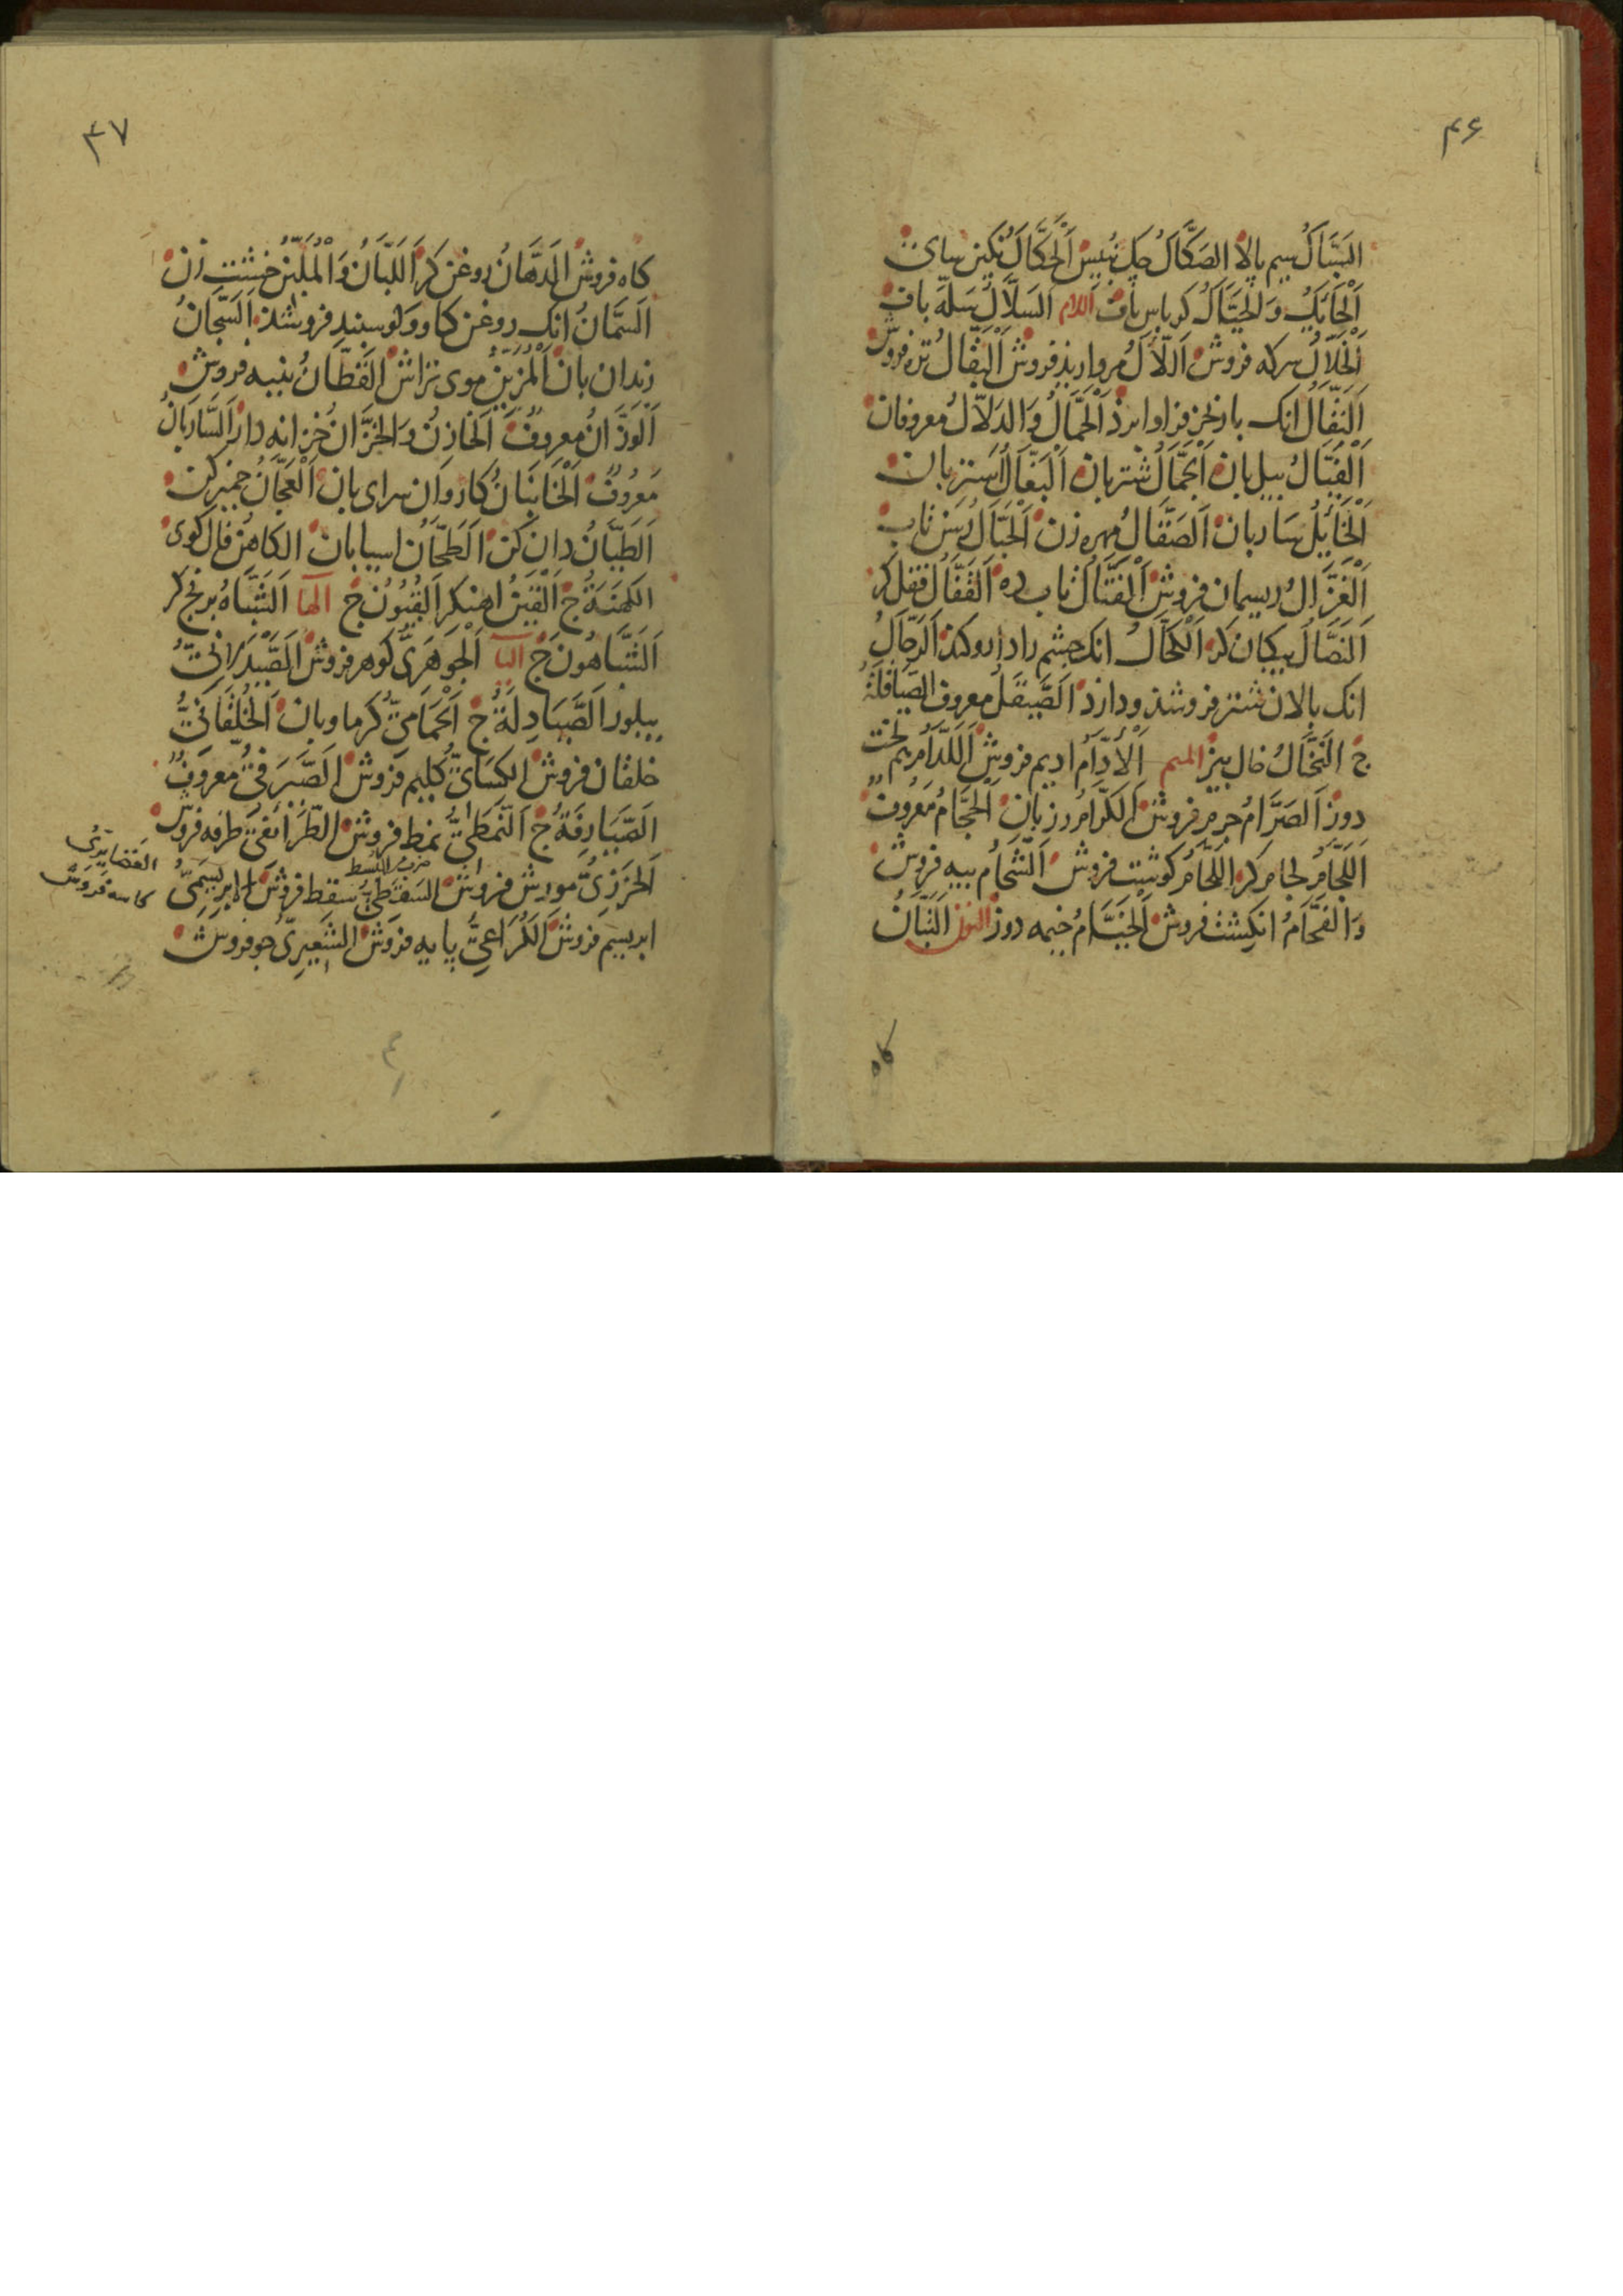 ۴۶
اَلسَّبَّاكُ سیم پالا الصَكَّاكُ چك نُبیسْ اَلْحَكَّاكُ نكین سای
اَلْحَائِكُ وَالْحَيَّاكُ كرباس باف اللام اَلسَّلَّالُ سَلَّه باف
اَلْخَلَّالُ سركه فروش اَللَّأْلُ مرواریذ فروش اَلْبَقَّالُ تره فروش
اَلنَقَّالُ انك بار خر فرا اوارد اَلْحَمَّالُ وَالدَلَّالُ معروفان
اَلْفَيَّالُ بیل بان اَلْجَمَّالُ شتر بان اَلْبَغَّالُ استر بان
اَلْخَائِلُ ساربان اَلصَقَّالُ مهره زن اَلْحَبَّالُ رسن تاب
اَلْغَزَّالُ ریسمان فروش اَلْفَتَّالُ تاب ده اَلقَفَّالُ قفل كر
اَلنَصَّالُ بیكان كر اَلْكَحَّالُ انك چشم را دارو كند اَلرَحَّالُ
انك پالان شتر فروشذ و دارذ اَلصَّيْقَلُ معروف الصَيَاقلَةُ
ج اَلنَخَّالُ خاك بیز المیم اَلْأَدَّامُ ادیم فروش اَللَدَّامُ
دوز اَلصَرَّامُ چرم فروش اَلكَرَّامُ رزبان اَلْحَجَّامُ مَعْرُوفٌ
اَللَجَّامُ لجام كر اَللَحَّامُ كوشت فروش اَلشَحَّامُ پیه فروش
وَالفَحَّامُ انكشت فروش اَلْخَيَّامُ خیمه دوز النون اَلتَبَّانُ
كاه
۴۷
كاه فروش اَلدَهَّانُ روغن كر اَللَبَّانُ وَالْمُلَبِّنُ خشت زن
اَلسَمَّانُ انك روغن كاو و كوسبند فروشذ اَلسَجَّانُ
زندان بان اَلْمُزَيِّنُ موی تراش اَلقَطَّانُ بنبه فروش
اَلوَزَّانُ معروفٌ اَلخَازِنُ وَالخَزَّانُ خزانه دار اَلسَّارَبَانُ
مَعْرُوفٌ اَلْخَانبَانُ كاروان سرای بان اَلْعَجَّانُ خمیر كن
اَلطَيَّانُ كن اَلطَحَّانُ اسیابان الكَاهِنُ فال كوی
الكَهَنَةُ ج اَلْقَيْنُ اهنكر اَلقُيُونُ ج الها اَلشَبَّاهُ برنج كر
اَلشَبَّاهُونَ ج الیا اَلْجَوهَرَیُّ كوهر فروش اَلصَّيْدَلَانِیُّ
بیلور اَلصَّيَادِلَةُ ج اَلْحَمَّامِیُّ كرماوبان اَلْخُلْقَانِیُّ
خلقان فروش الكِسَائِیُّ كلیم فروش اَلصَّيْرَفِیُّ معروفٌ
الصَّيَارِفَةُ ج اَلنَمَطِیُّ نمط فروش الطَرَائِفِیُّ طرفه فروش
الغَضَايِرِیُّ كاسه فروش
اَلْخَرَزِیُّ مورش فروش السَقَطِیُّ سقط فروش اَلْاِبْرِيسَمِیُّ
ابریسم فروش اَلكُرَاعِیُّ پایه فروش الشَعِيرِیُّ جو فروش